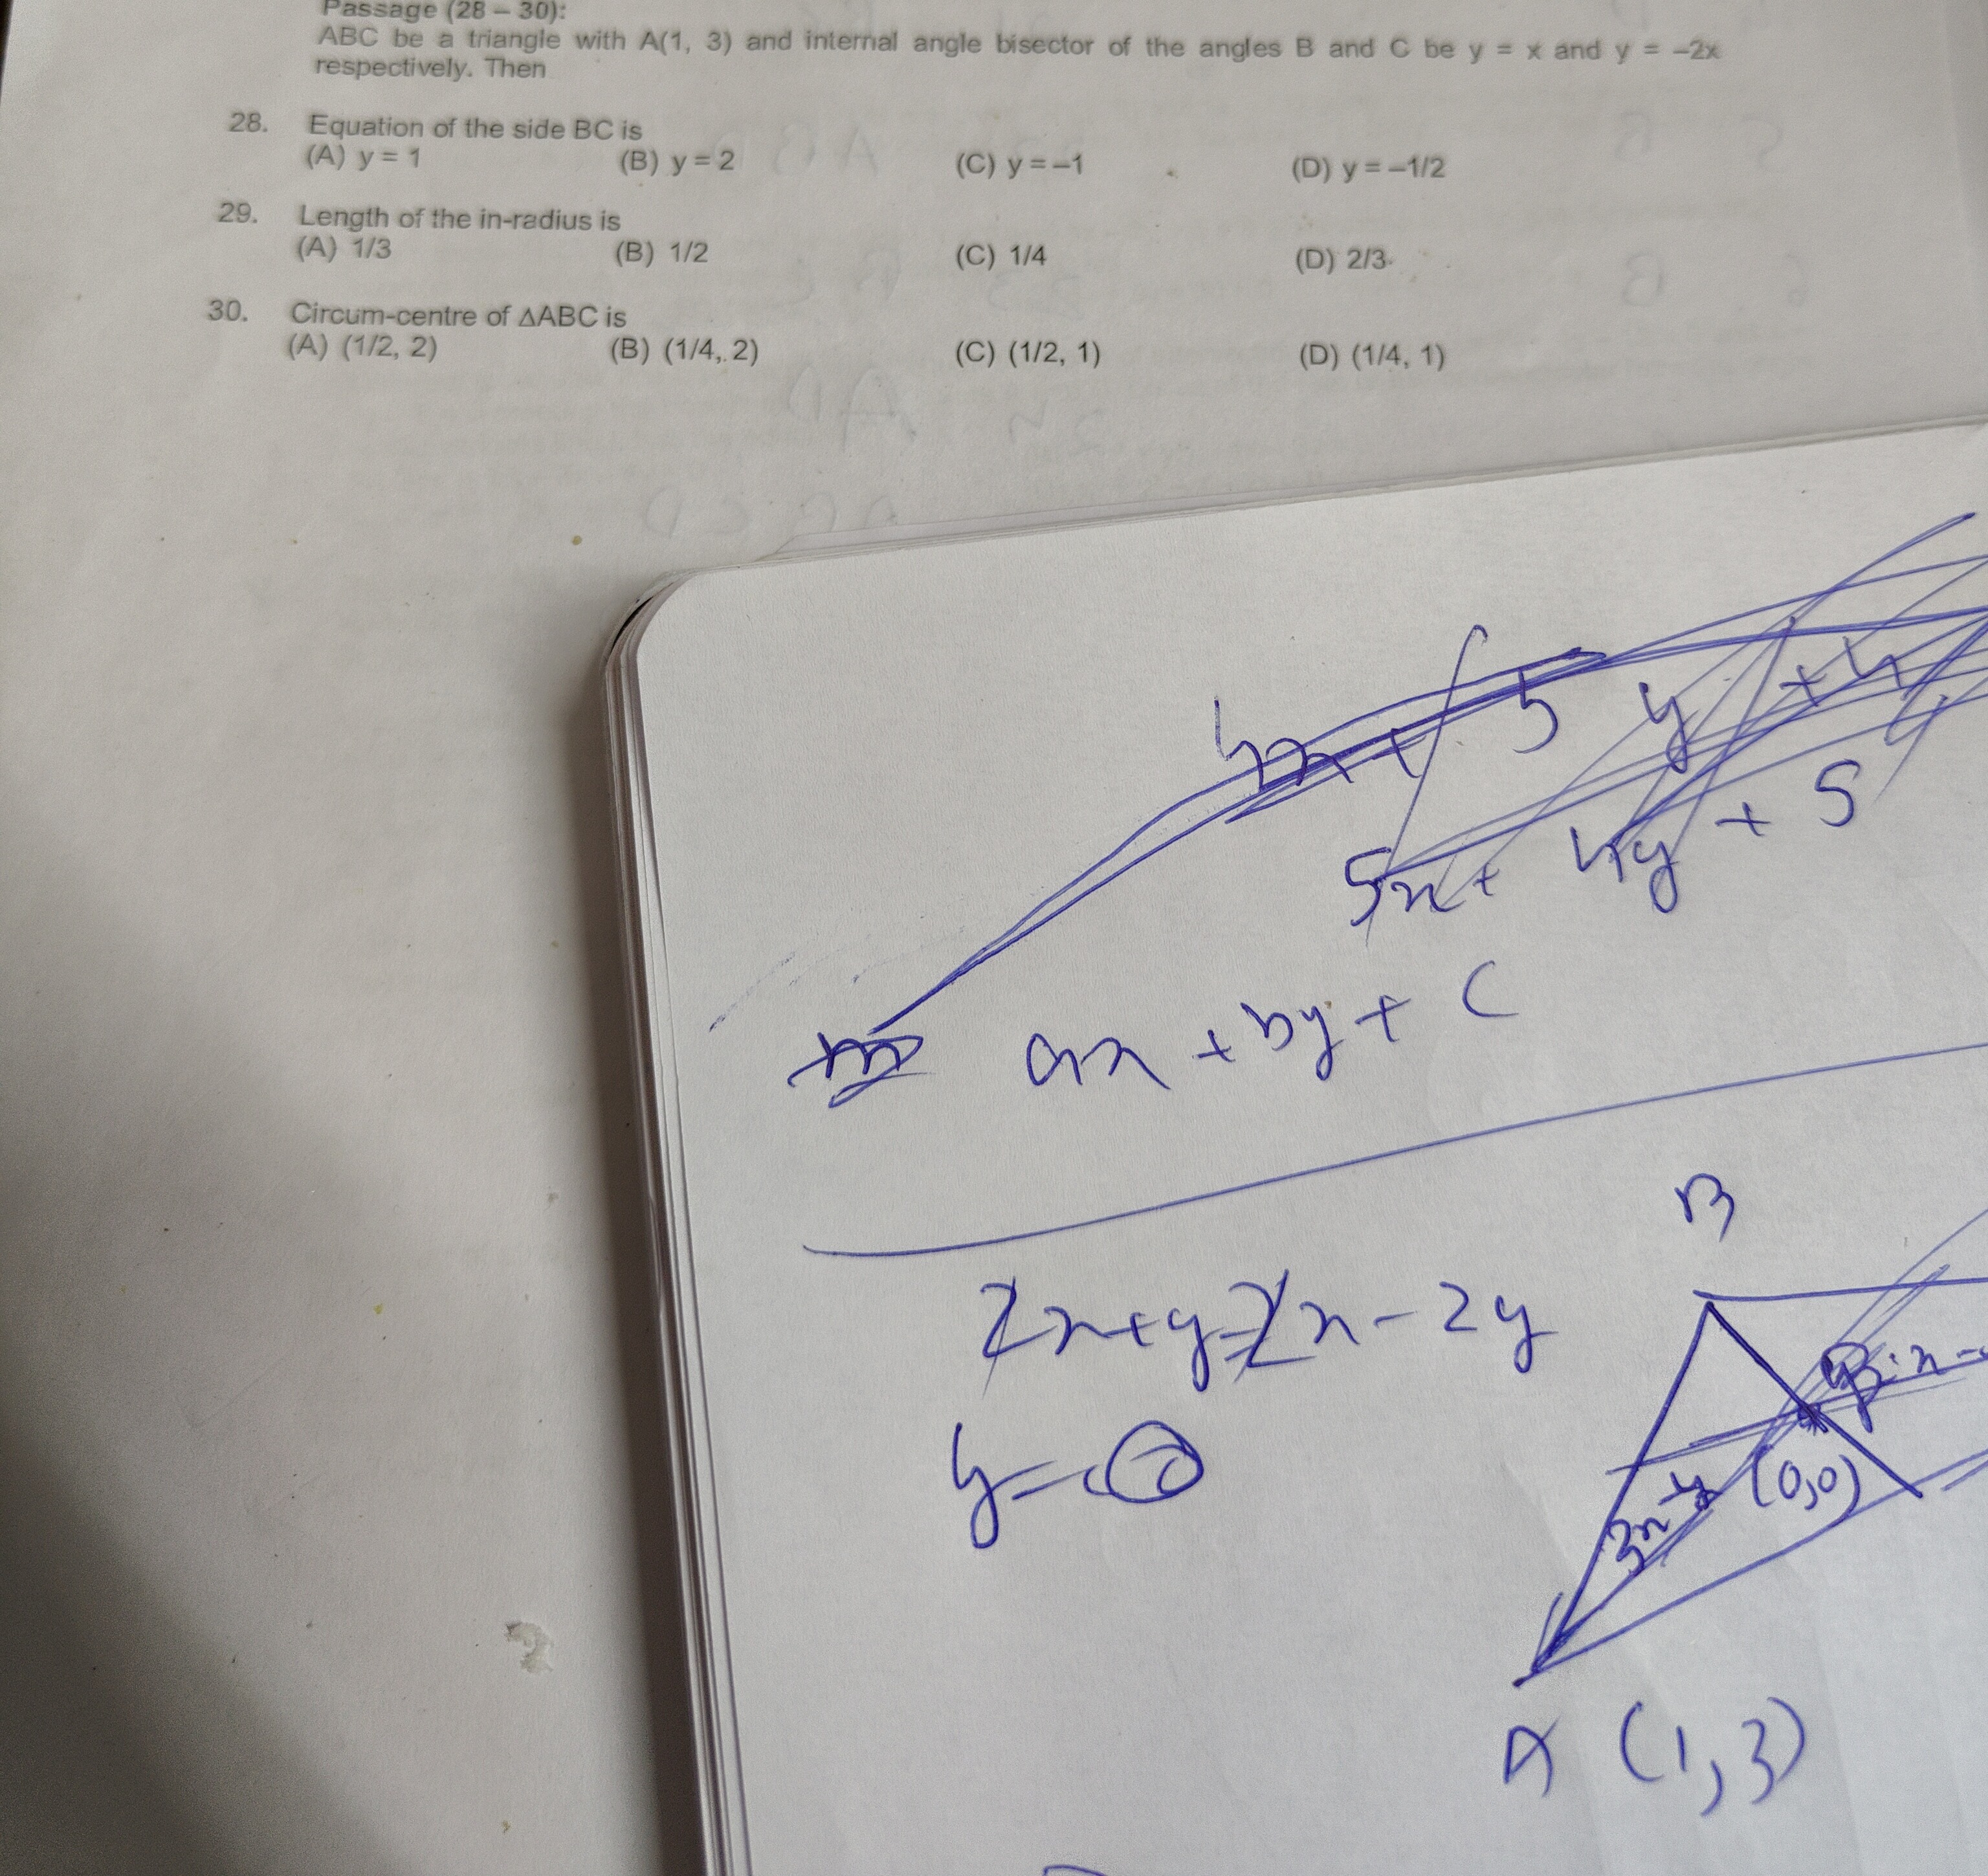 Passage (28 – 30):
ABC be a triangle with A(1, 3) and internal angle bisector of the angles B and C be y = x and y = –2x
respectively. Then
28. Equation of the side BC is
(A) y = 1 (B) y = 2 (C) y = –1 (D) y = –1/2
29. Length of the in-radius is
(A) 1/3 (B) 1/2 (C) 1/4 (D) 2/3
30. Circum-centre of ΔABC is
(A) (1/2, 2) (B) (1/4, 2) (C) (1/2, 1) (D) (1/4, 1)
4x + 5y + 4
5x + 4y + 5
ax + by + c
B
2x+y=2x-2y
y=0
(0,0)
3x-y
A (1,3)